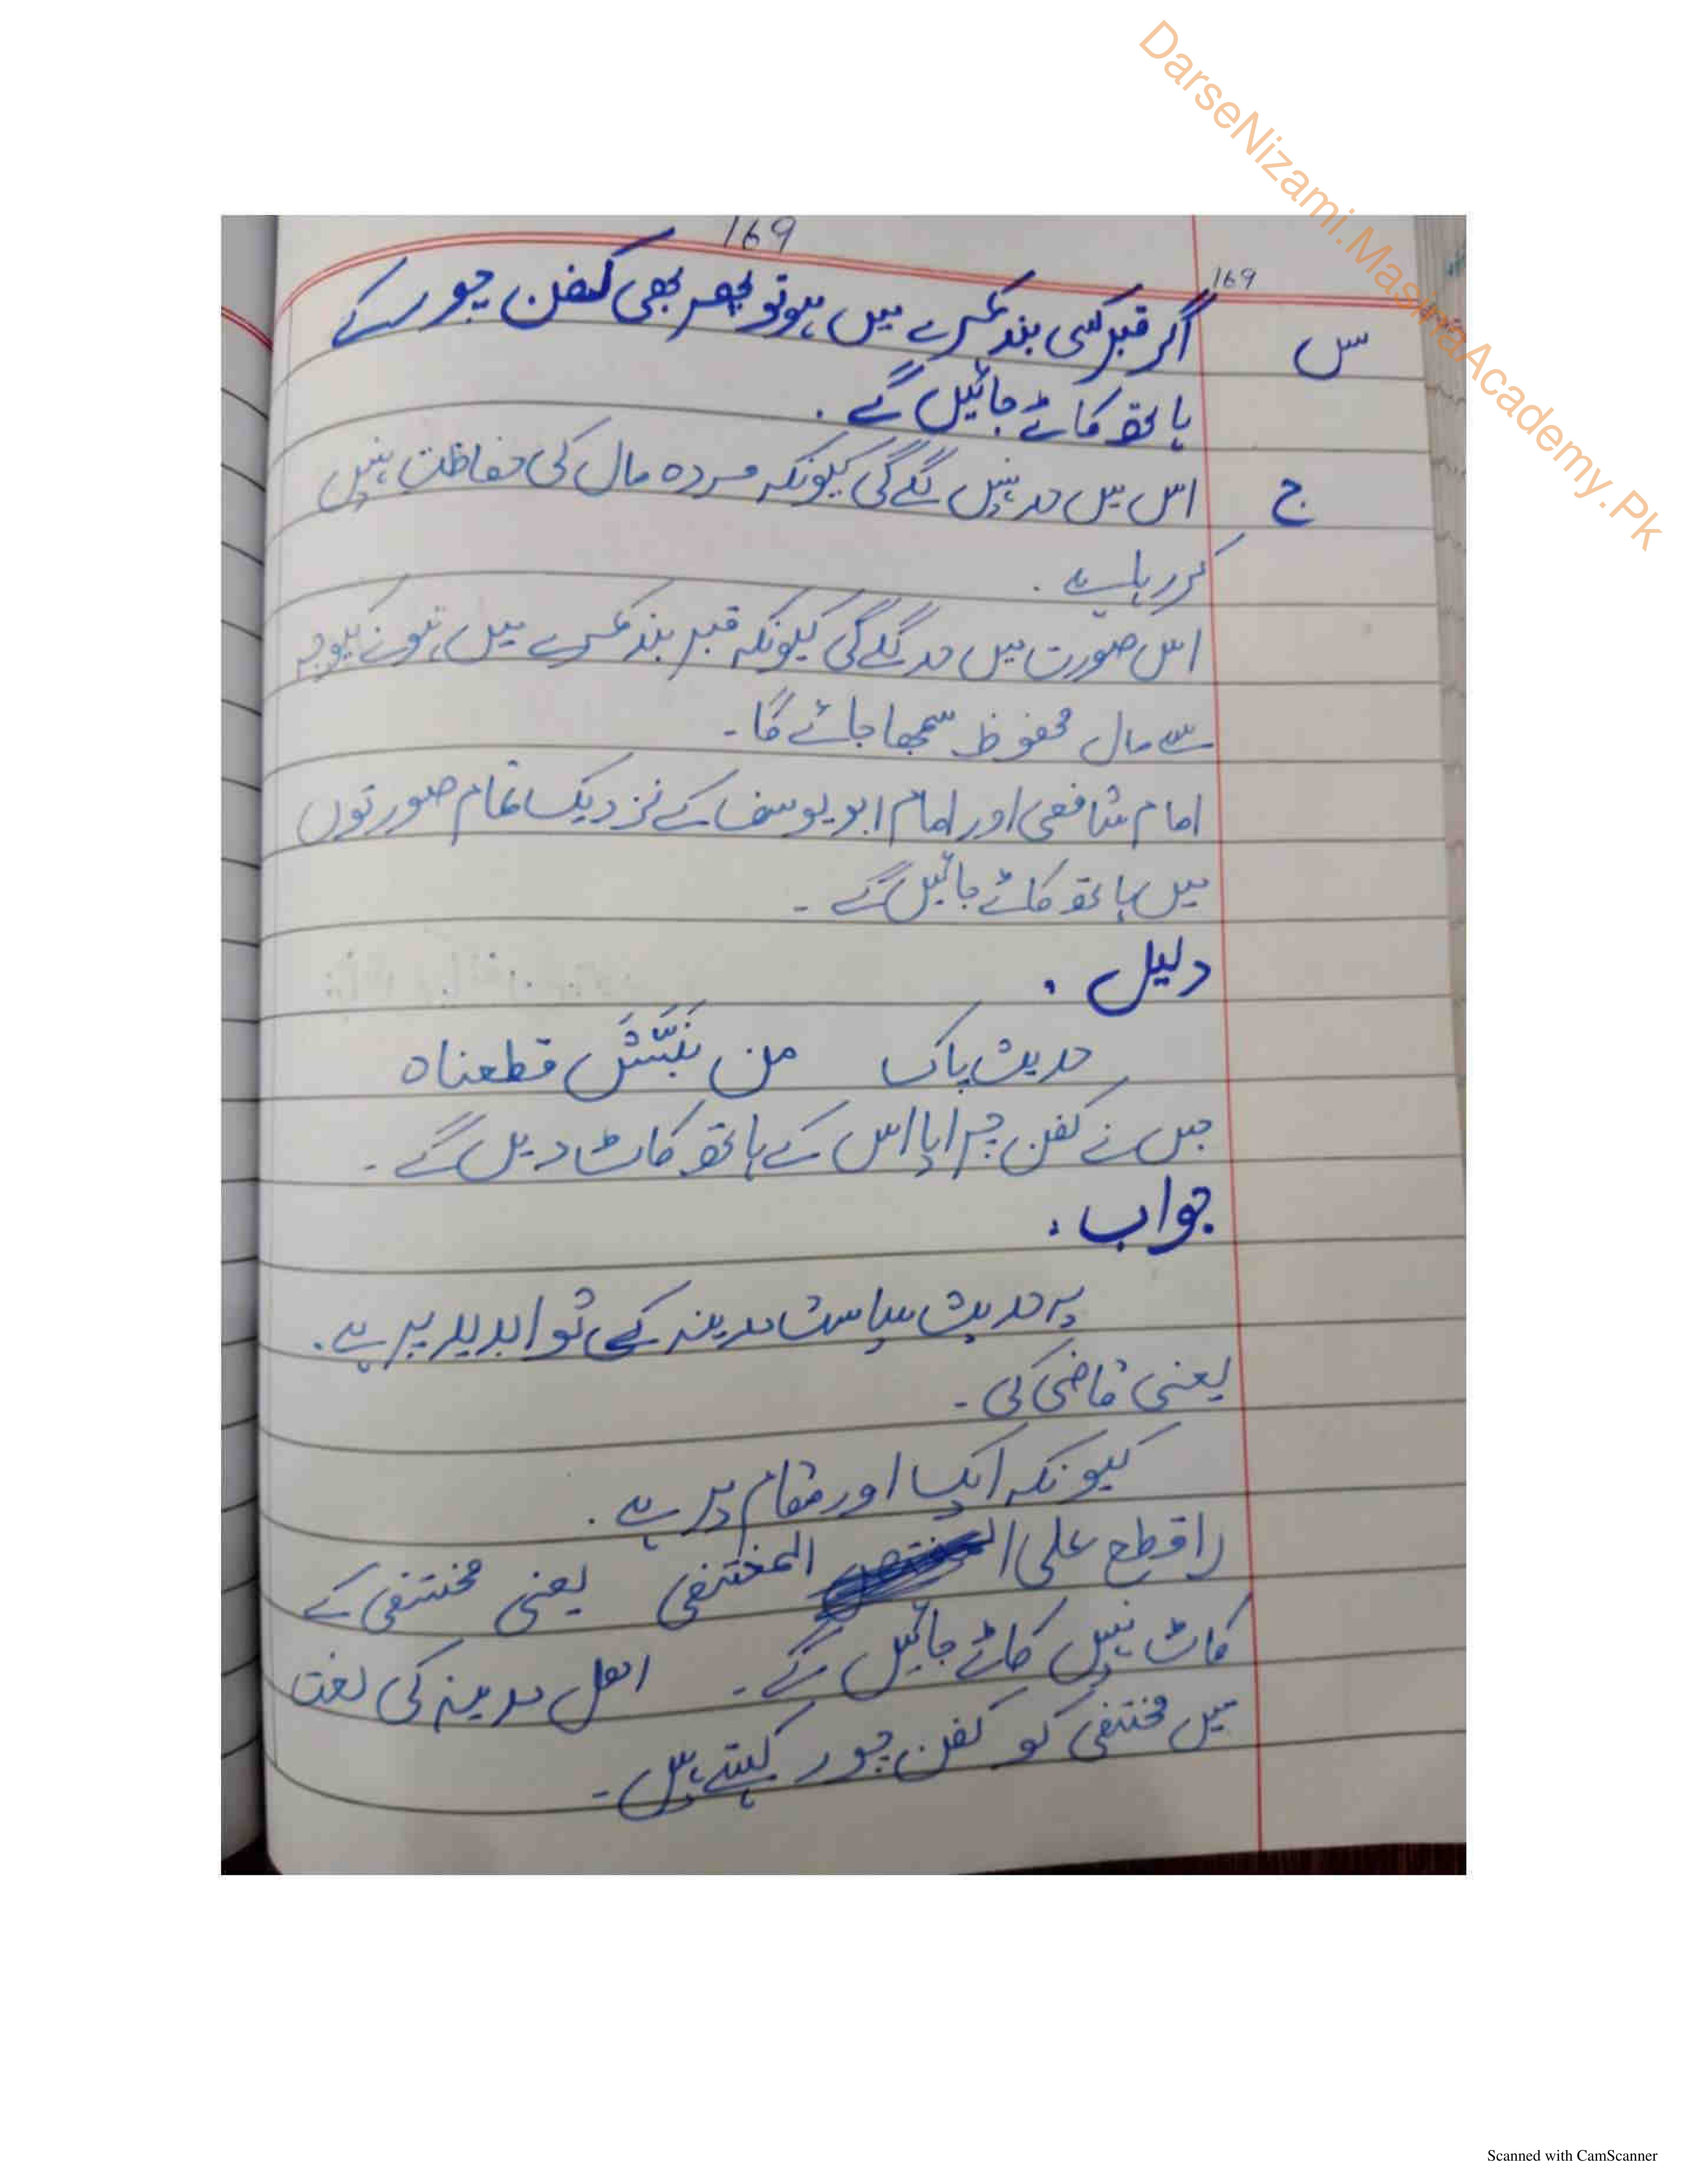 DarseNizami.MasihaAcademy.Pk
169
169
س اگر قبر کسی بند کمرے میں ہو تو پھر بھی کفن چور کے
ہاتھ کاٹے جائیں گے .
ج اس میں حد نہیں لگے گی کیونکہ مردہ مال کی حفاظت نہیں
کر رہا ہے .
اس صورت میں حد لگے گی کیونکہ قبر بند کمرے میں ہونے کیوجہ
سے مال محفوظ سمجھا جائے گا ۔
امام شافعی اور امام ابو یوسف کے نزدیک تمام صورتوں
میں ہاتھ کاٹے جائیں گے ۔
دلیل .
حدیث پاک من نَبَّشَ قطعناہ
جس نے کفن چرایا اس کے ہاتھ کاٹ دیں گے ۔
جواب :
یہ حدیث سیاست مدینہ کے ثوابدید پر ہے .
یعنی قاضی کی ۔
کیونکہ ایک اور مقام پر ہے .
لا قطع علی المختفی یعنی مختفی کے
کاٹ نہیں کاٹے جائیں گے ۔ اھل مدینہ کی لغت
میں مختفی کو کفن چور کہتے ہیں ۔
Scanned with CamScanner